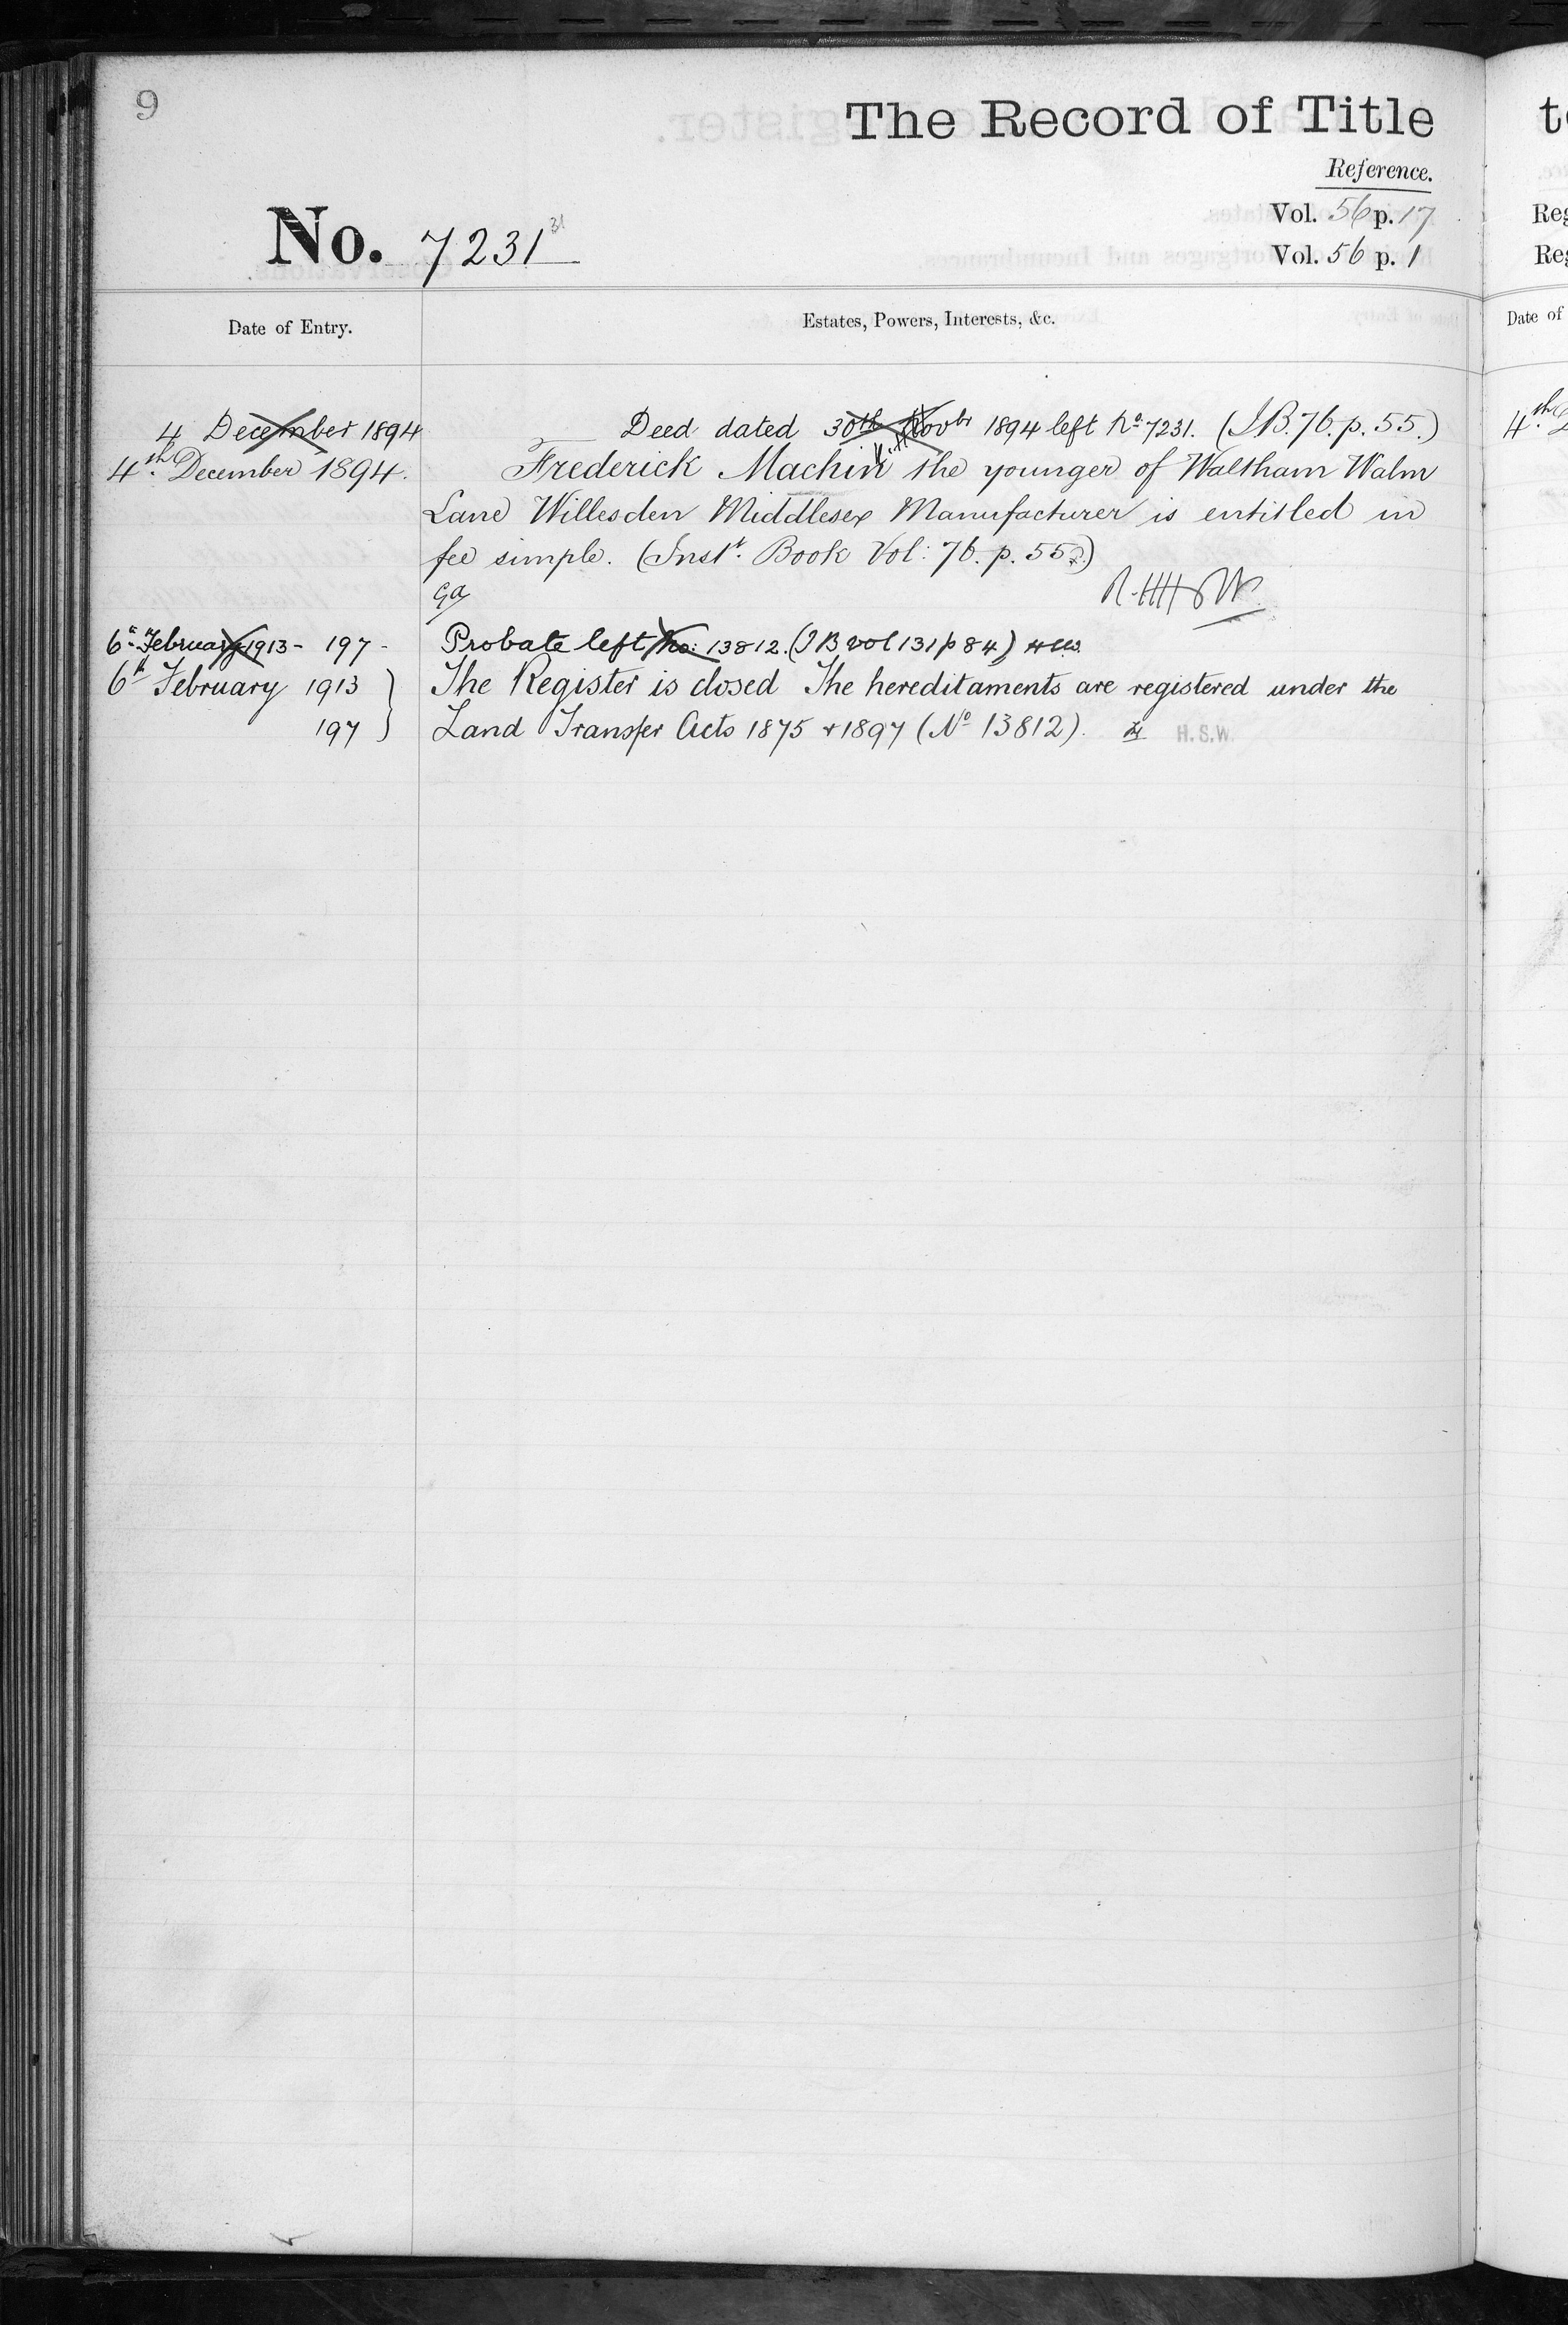 9
The Record of Title
Reference.
Vol. 56 p. 17
No. 7231 31
Vol. 56 p. 1
Date of Entry.
Estates, Powers, Interests, &c.
4 December 1894
Deed dated 30th Novbr 1894 left No. 7231. (I.B. 76. p. 55.)
4th December 1894.
Frederick Machin the younger of Waltham Walm
Lane Willesden Middlesex Manufacturer is entitled in
fee simple. (Inst. Book Vol: 76. p. 55.)
6th February 1913 - 197 -
Probate left No: 13812. (I B vol 131 p 84)
6th February 1913 }
The Register is closed The hereditaments are registered under the
197 }
Land Transfer Acts 1875 & 1897 (No 13812). H.S.W.
to
Reg
Reg
Date of
4th D